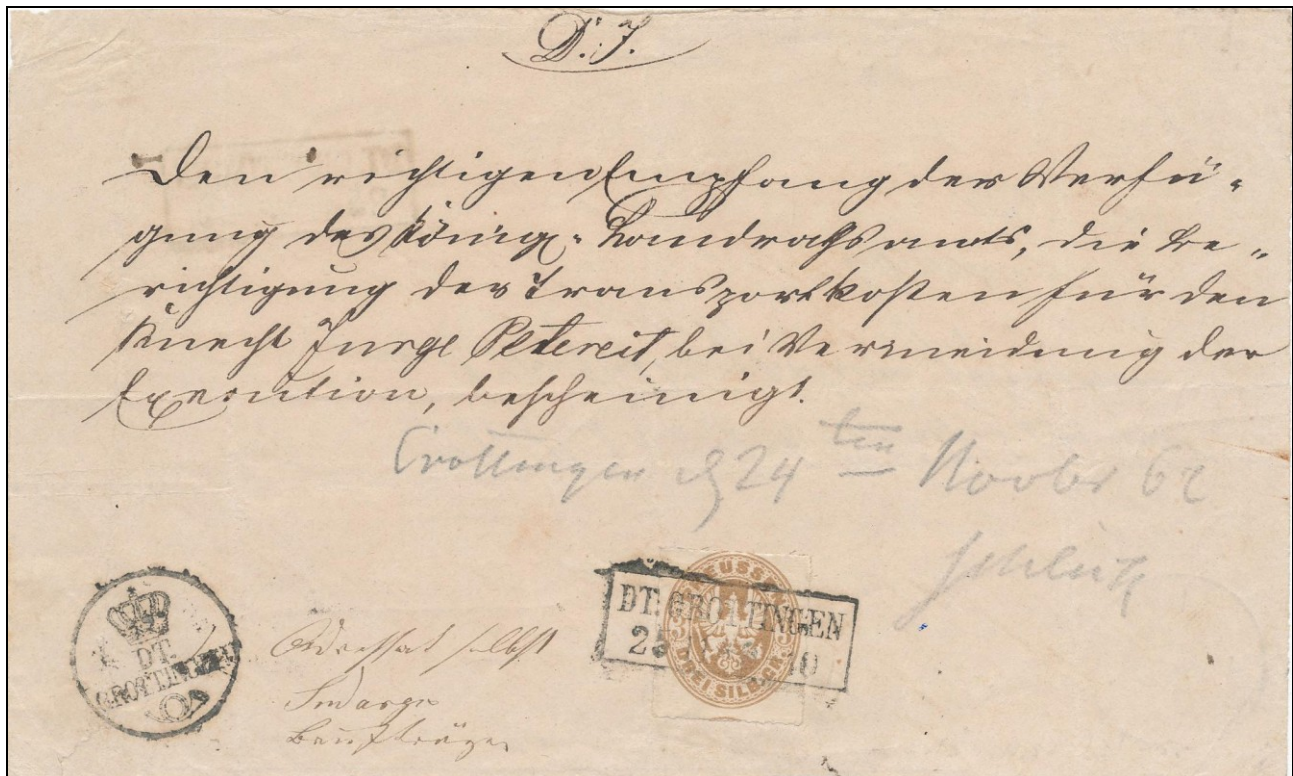 D. J.
Den richtigen Empfang der Verfü-
gung des Königl. Landrathsamts, die Be-
richtigung der Transportkosten für den
Knecht Jurge Petereit, bei Vermeidung der
Execution, bescheinigt.
Crottingen d 24 ten Novbr 62
DT. CROTTINGEN
25 10
PREUSSEN
3 3
DREI SILB. GR.
DT.
CROTTINGEN
Adressat selbst
Briefträger